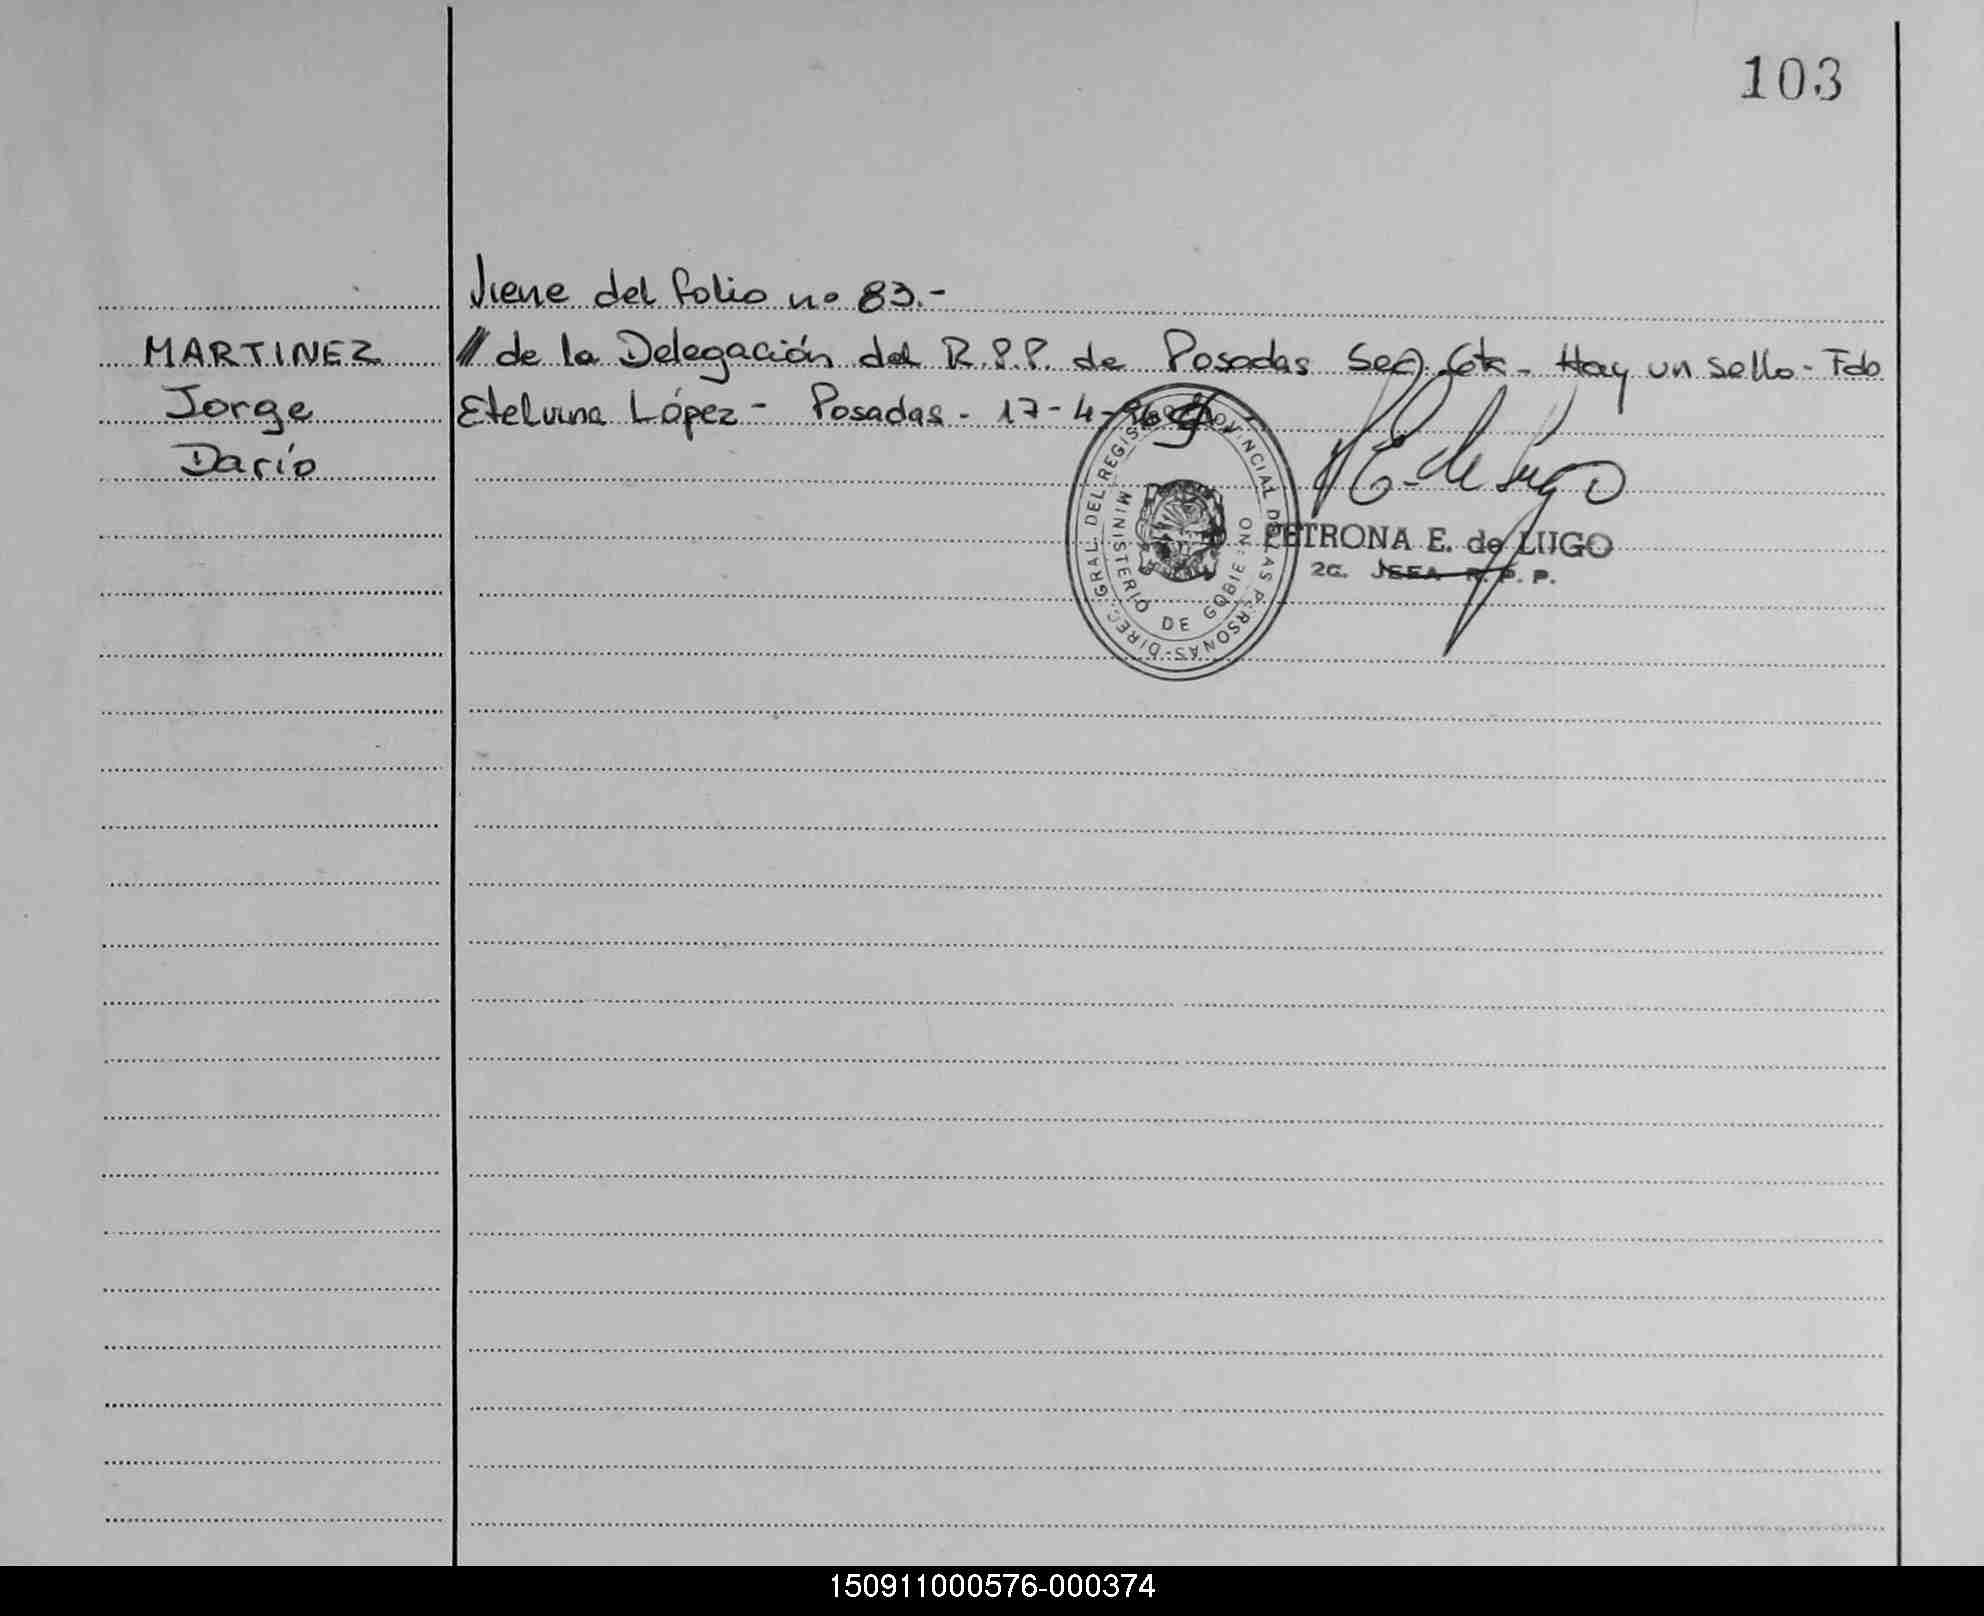 103
Viene del folio no 83.-
MARTINEZ
// de la Delegación del R.P.P. de Posadas Sec. 6ta - Hay un sello - Fdo
Jorge
Etelvina López - Posadas - 17-4-
Darío
DIREC. GRAL. DEL REGISTRO PROVINCIAL DE LAS PERSONAS
MINISTERIO DE GOBIERNO
P E. de Lugo
PETRONA E. de LUGO
2a. JEFA R. P. P.
150911000576-000374